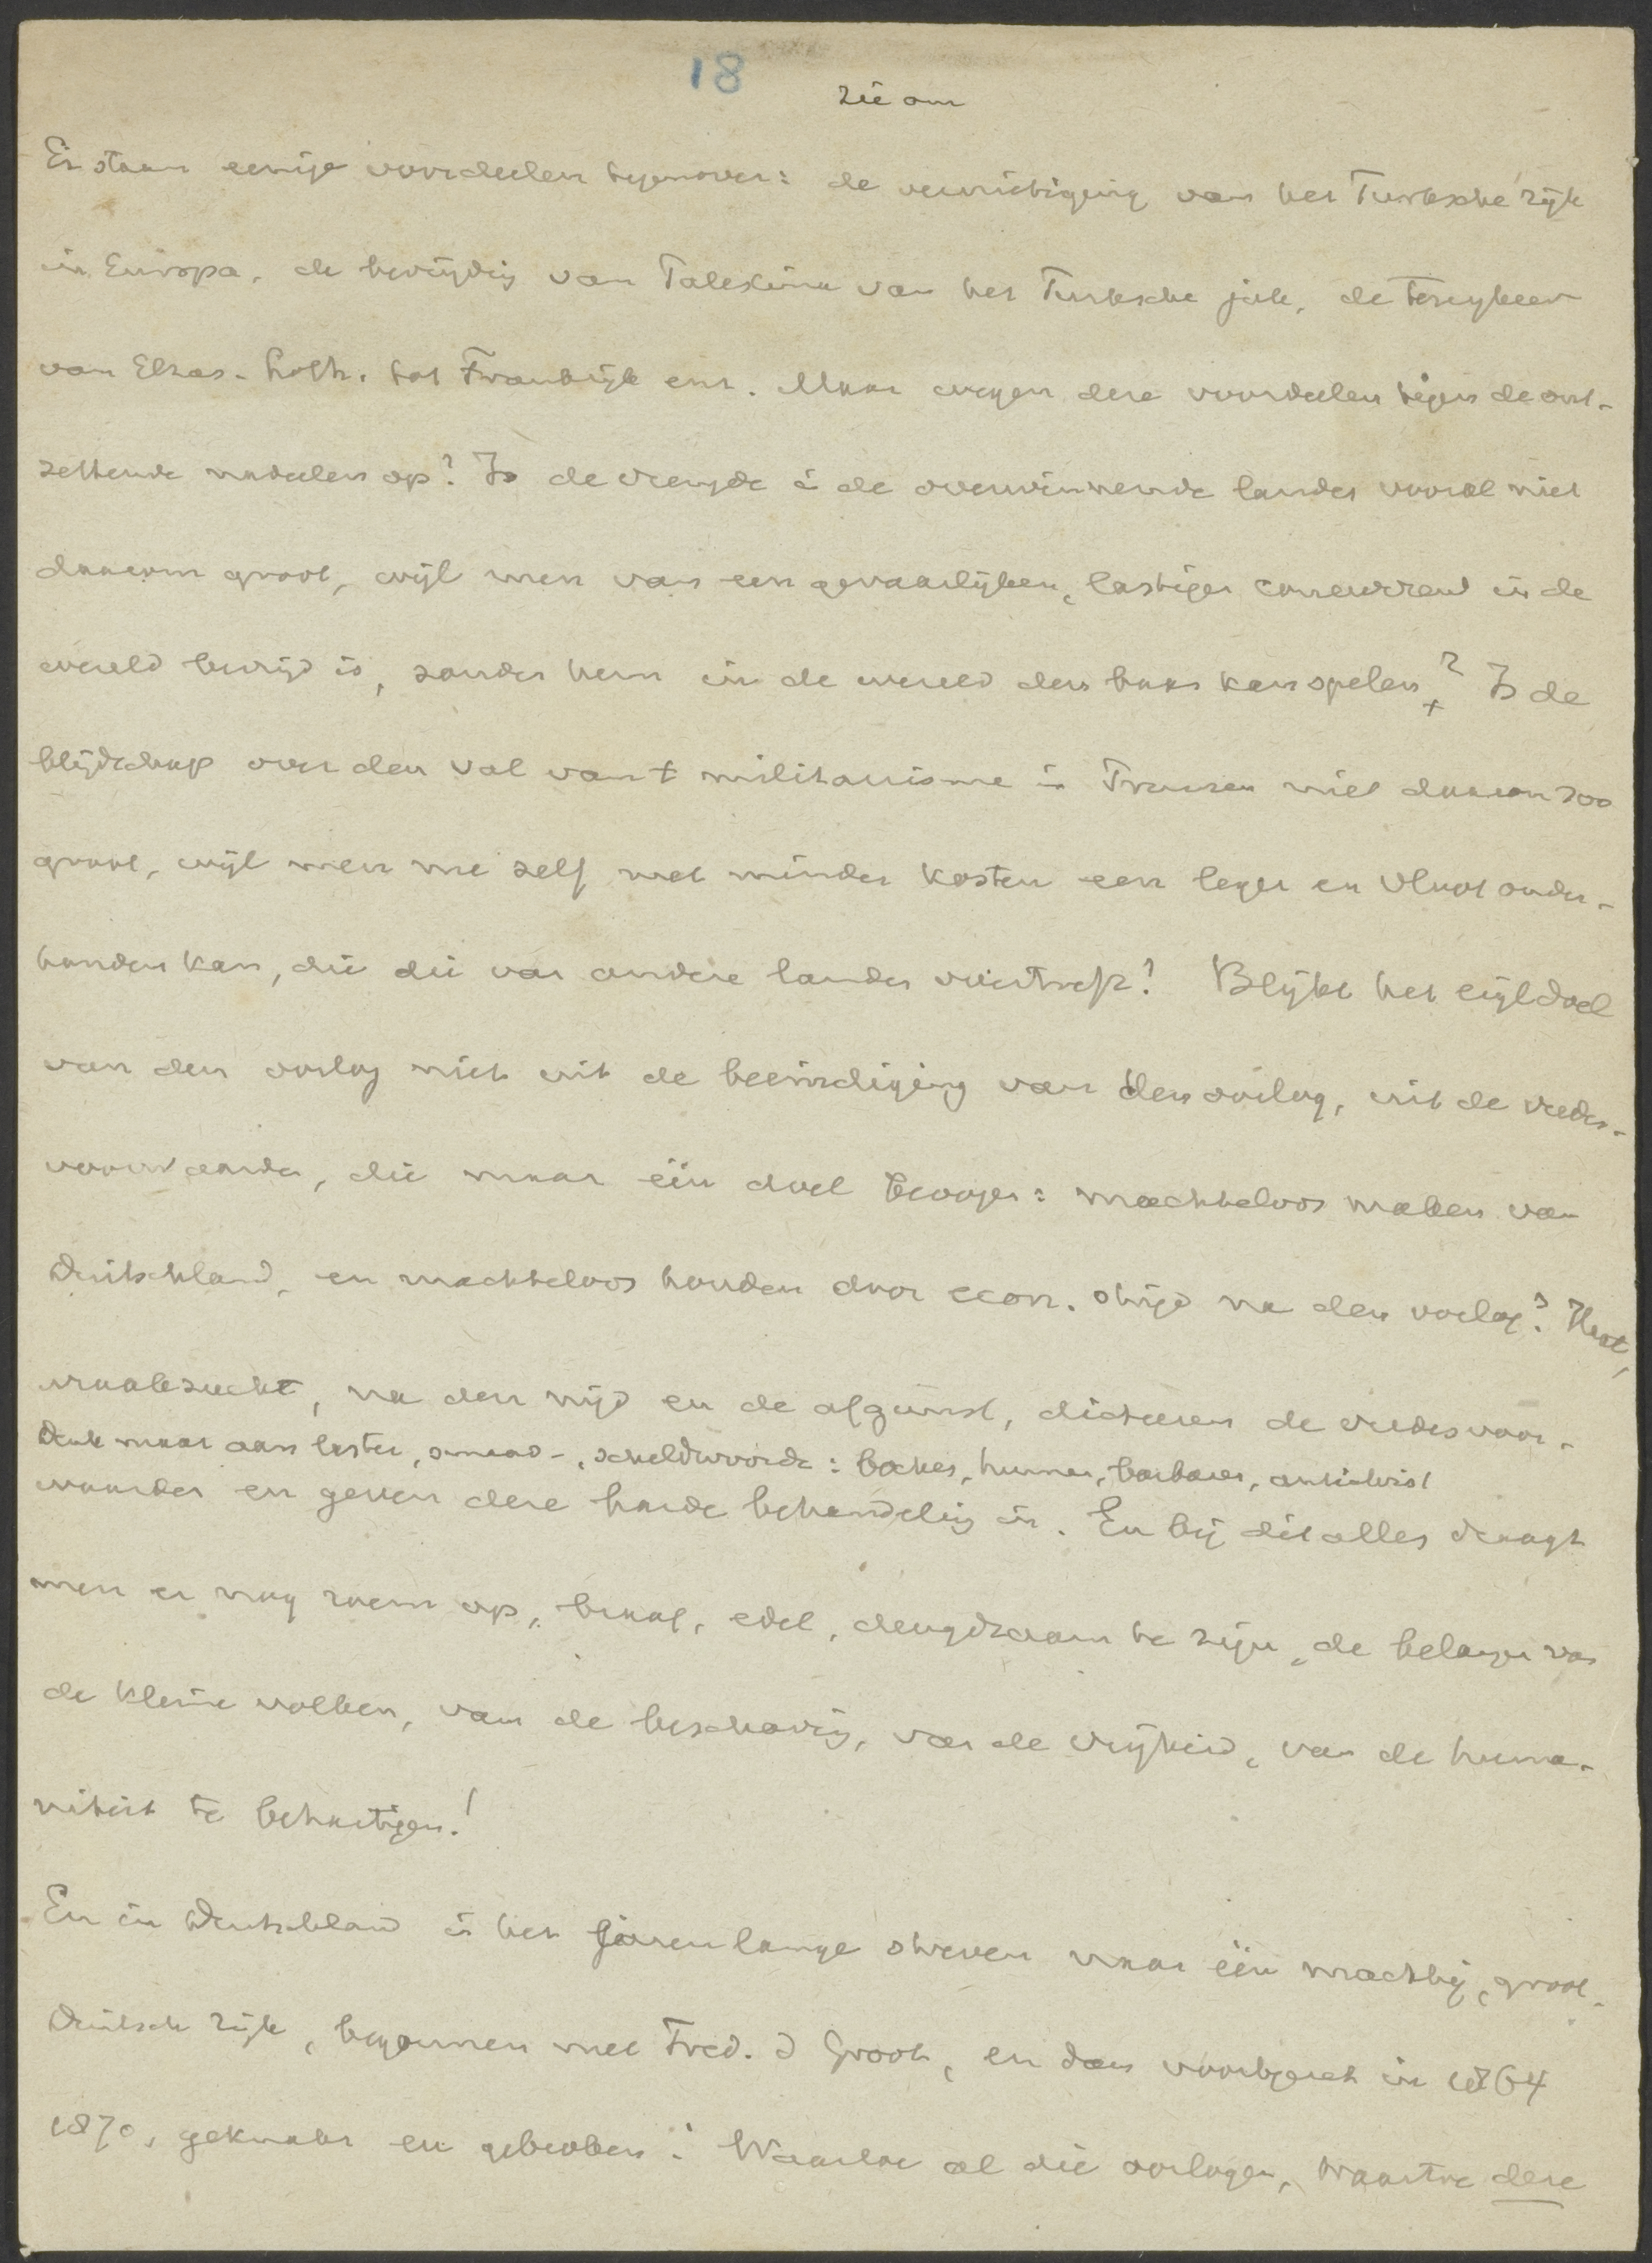 18
zie om
Er staan eenige voordeelen tegenover: de vernietiging van het Turksche rijk
in Europa, de bevrijding van Palestina van het Turksche juk, de terugkeer
van Elzas-Loth. tot Frankrijk enz. Maar wegen deze voordeelen tegen de ont-
zettende nadeelen op? Is de vreugde in de overwinnende landen vooral niet
daarom groot, wijl men van een gevaarlijken, lastigen concurrent in de
wereld bevrijd is, zonder hem in de wereld den baas kan spelen,+? Is de
blijdschap over den val van 't militarisme in Pruisen niet daarom zoo
groot, wijl men nu zelf met minder kosten een leger en vloot onder-
houden kan, die die van andere landen overtreft? Blijkt het eigl doel
van den oorlog niet uit de beeindiging van den oorlog, uit de vredes-
voorwaarden, die maar één doel beoogen: machteloos maken van
Duitschland, en machteloos houden door econ. strijd na den oorlog? Haat,
wraakzucht, na den nijd en de afgunst, dicteeren de vredesvoor-
Denk maar aan laster, smaad-, scheldwoorden: boches, hunnen, barbaren, antichrist
waarden en geven deze harde behandeling in. En bij dit alles draagt
men er nog roem op, braaf, edel, deugdzaam te zijn, de belangen van
de kleine volken, van de beschaving, van de vrijheid, van de huma-
niteit te behartigen!
En in Duitschland is het jarenlange streven naar één machtig, groot-
Duitsch rijk, begonnen met Fred. d Groote, en dan voortgezet in 1864
1870, geknakt en gebroken! Waartoe al die oorlogen, waartoe deze